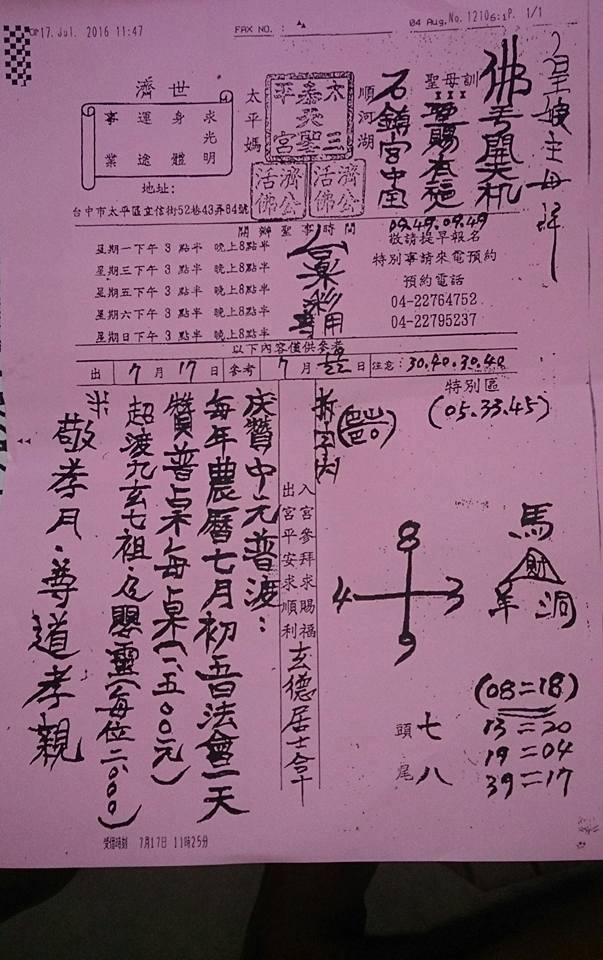 17. Jul. 2016 11:47
FAX NO. :
04 Aug. No. 1210 P. 1/1
皇娘主母拜
佛弄開天机
聖母訓
聖賜有福
石鎮宮中宝
順河湖
太三
泰天聖
平宮
太平媽
濟公活佛
濟公活佛
濟世
求光明
身體
運途
事業
地址:
台中市太平區立信街52巷43弄84號
開辦聖事時間
星期一下午 3 點半 晚上8點半
星期三下午 3 點半 晚上8點半
星期五下午 3 點半 晚上8點半
星期六下午 3 點半 晚上8點半
星期日下午 3 點半 晚上8點半
09.49.09.49
敬請提早報名
特別事請來電預約
預約電話
04-22764752
04-22795237
以下內容僅供參考
出 7月17日 參考 7月 日 注意: 30.40.30.40
特別區
(05.33.45)
入宮參拜求賜福
出宮平安求順利
玄德居士合十
慶贊中元普渡:
每年農曆七月初五日法會一天
贊普桌每桌(一、五00元)
超渡九玄七祖、及嬰靈(每位二、000)
敬孝月、尊道孝親
8
4 3
9
馬
財
羊 洞
(08=18)
13=20
19=04
39=17
頭 七
尾 八
受信時刻 7月17日 11時25分